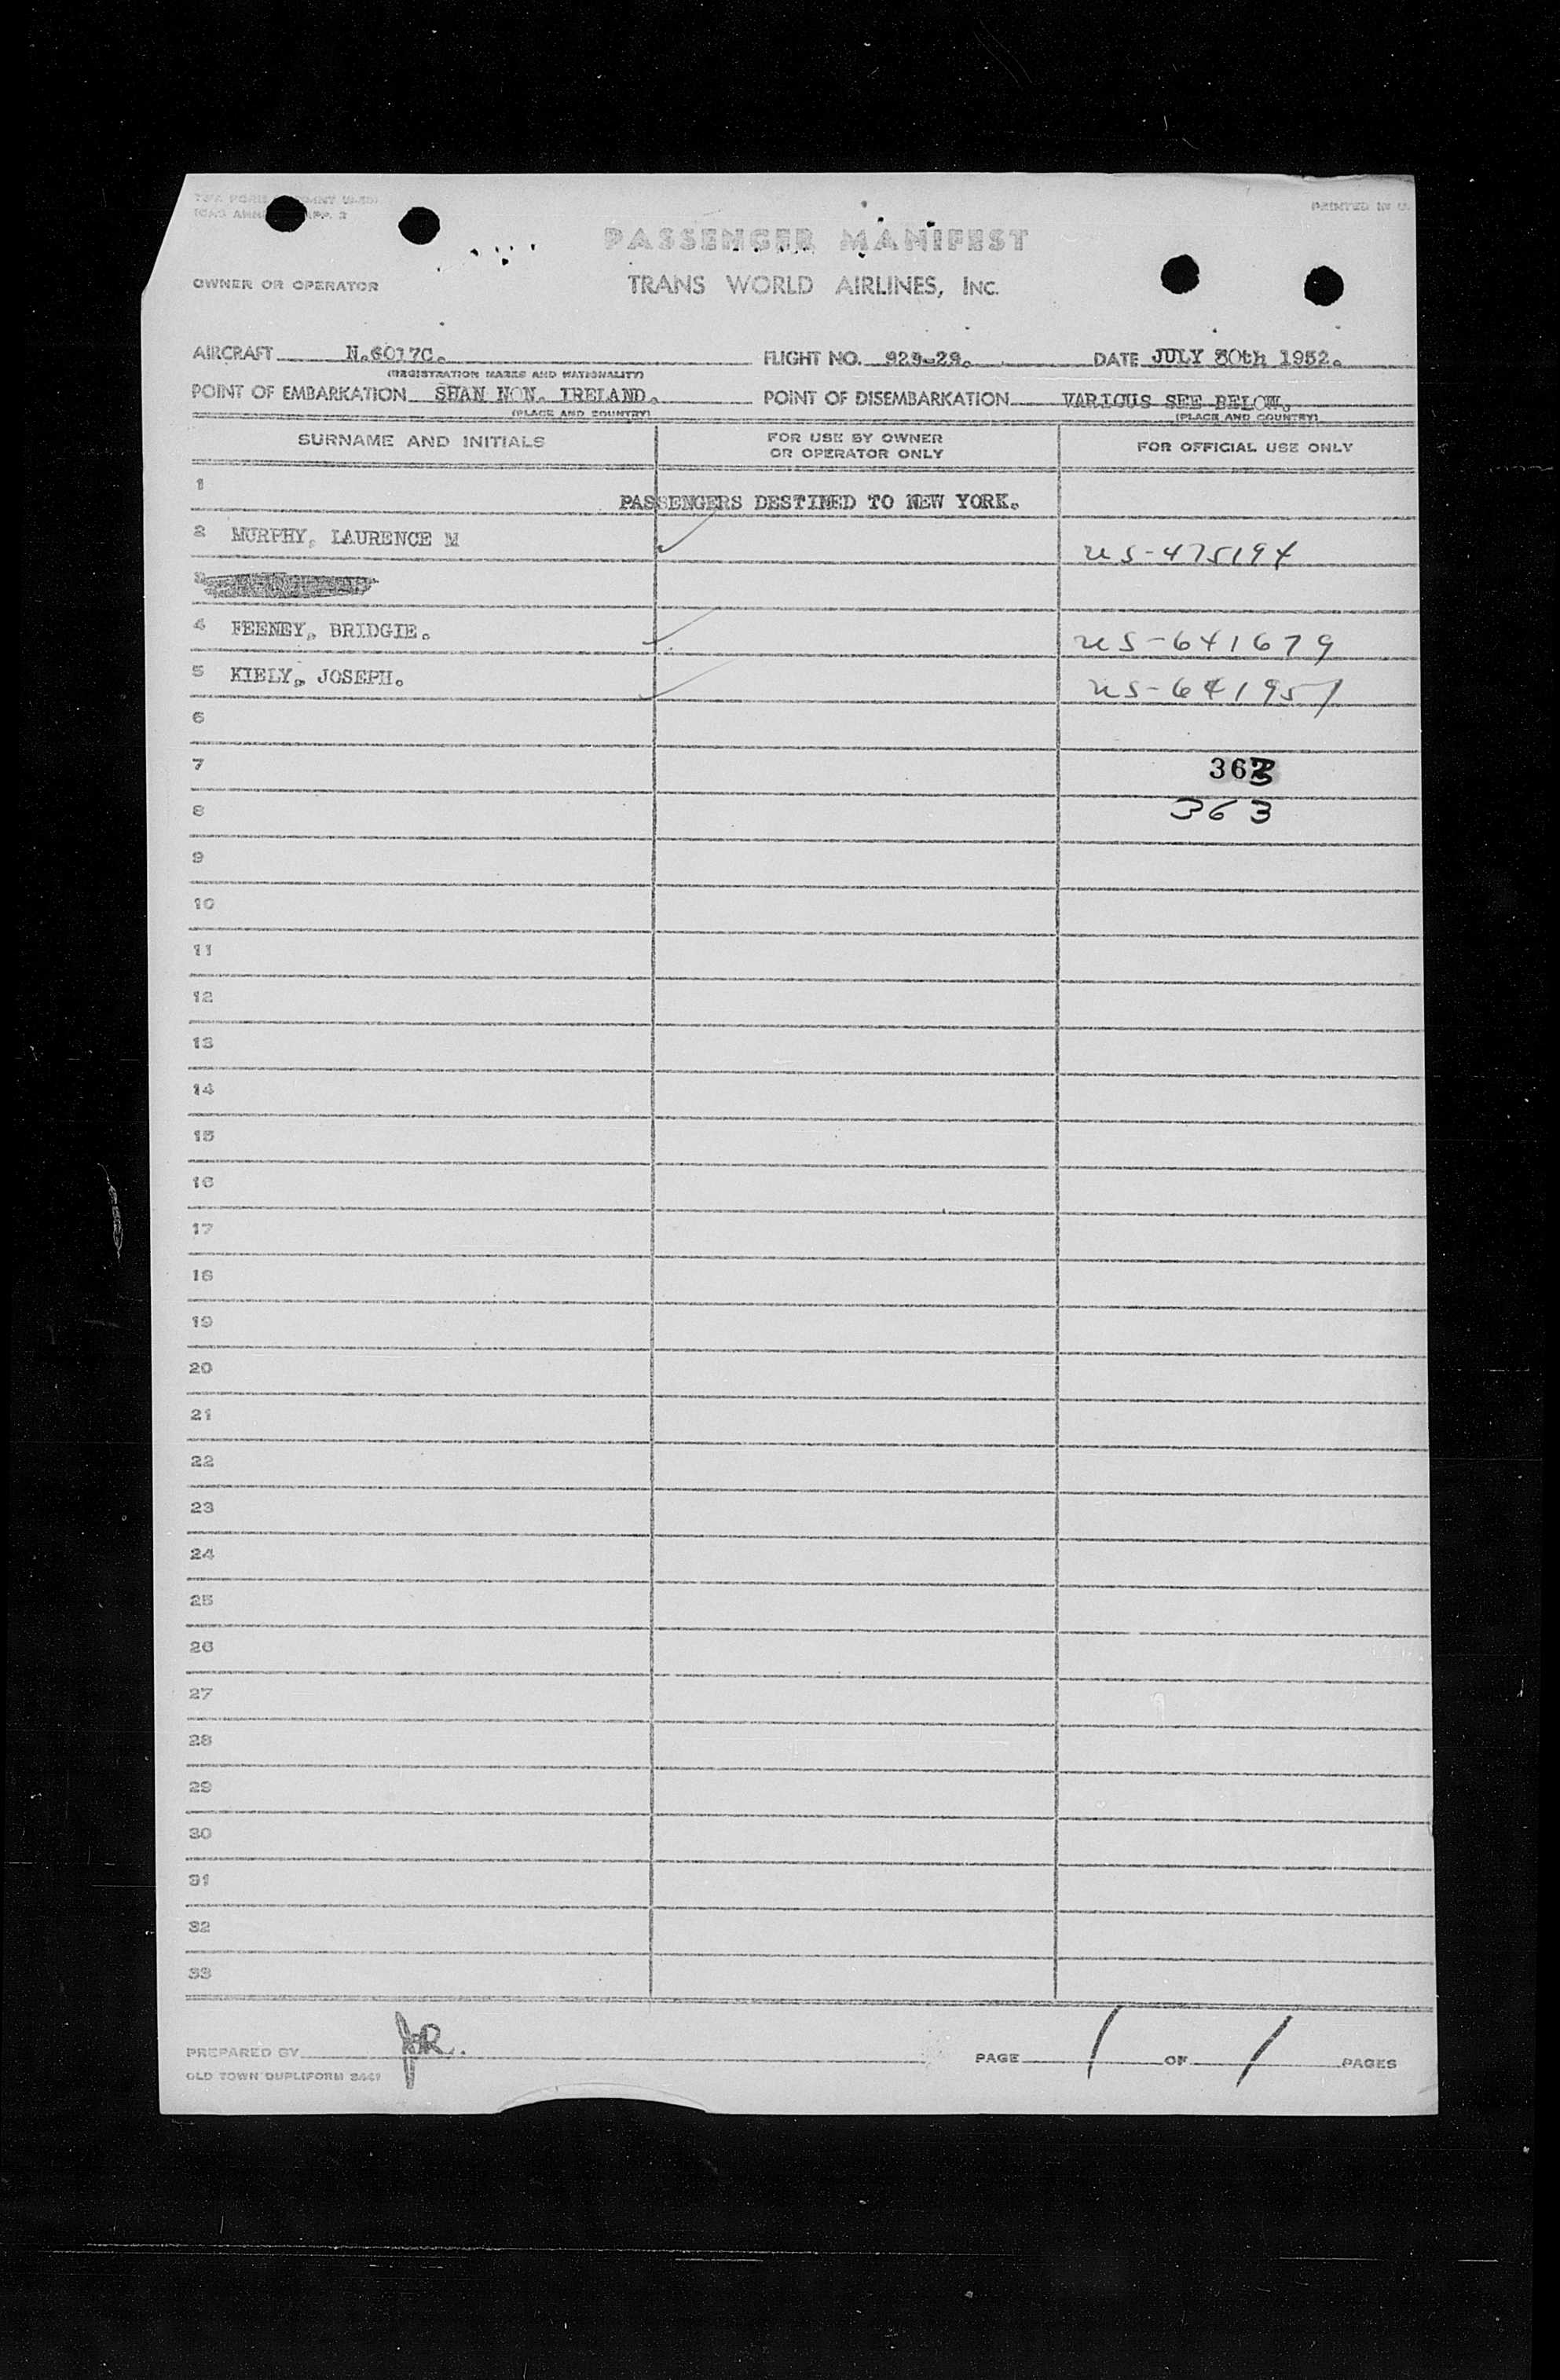 PRINTED IN U.
PASSENGER MANIFEST
OWNER OR OPERATOR TRANS WORLD AIRLINES, INC.
AIRCRAFT N.6017C. FLIGHT NO. 929-29. DATE JULY 30th 1952.
(REGISTRATION MARKS AND NATIONALITY)
POINT OF EMBARKATION SHAN NON. IRELAND. POINT OF DISEMBARKATION VARIOUS SEE BELOW.
(PLACE AND COUNTRY) (PLACE AND COUNTRY)
SURNAME AND INITIALS FOR USE BY OWNER OR OPERATOR ONLY FOR OFFICIAL USE ONLY
1 PASSENGERS DESTINED TO NEW YORK.
2 MURPHY, LAURENCE M US-475194
3
4 FEENEY, BRIDGIE. US-641679
5 KIELY, JOSEPH. US-641951
6
7 363
8 363
9
10
11
12
13
14
15
16
17
18
19
20
21
22
23
24
25
26
27
28
29
30
31
32
33
PREPARED BY JR. PAGE 1 OF 1 PAGES
OLD TOWN DUPLIFORM